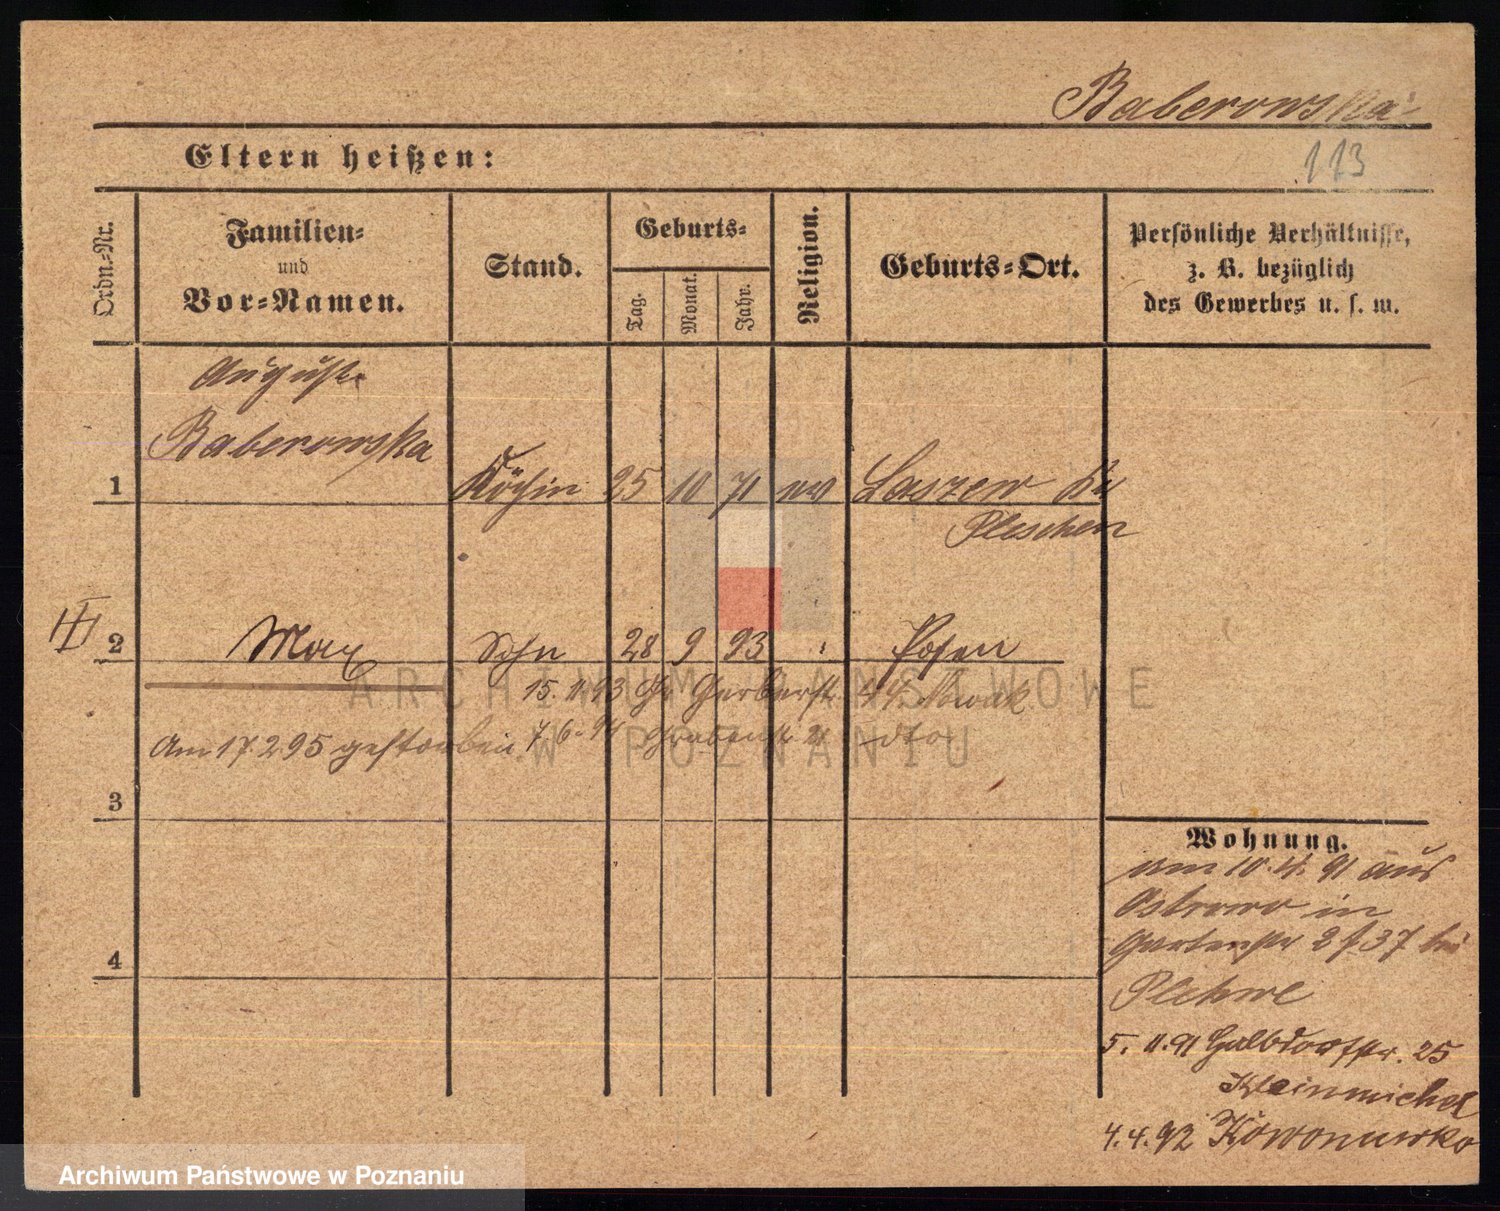 Baberowska
113
Eltern heißen:
Ordn.-Nr.
Familien-
und
Vor-Namen.
Stand.
Geburts-
Tag.
Monat.
Jahr.
Religion.
Geburts-Ort.
Persönliche Verhältnisse,
z. B. bezüglich
des Gewerbes u. s. w.
Auguste
Baberowska
1 Köchin 25 10 71 ev Laszew Kr
Pleschen
III
2 Max Sohn 28 9 93 " Posen
15. 11 93 Gr Gerberst 44 Nowak
Am 17 2 95 gestorben 7. 6. 94 Grabenst 21 dto
3
4
Wohnung.
am 10. 4. 91 aus
Ostrowo in
Gartenstr 37 bei
Plehwe
5. 11. 91 Halbdorfstr. 25
Kleinmichel
4. 4. 92
ARCHIWUM PAŃSTWOWE
W POZNANIU
Archiwum Państwowe w Poznaniu